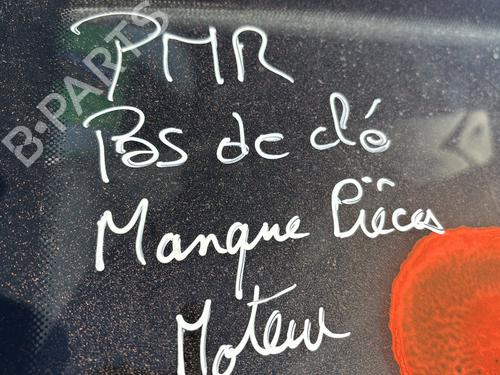 PMR
Pas de clé
Manque Pièces
Moteur
B-PARTS